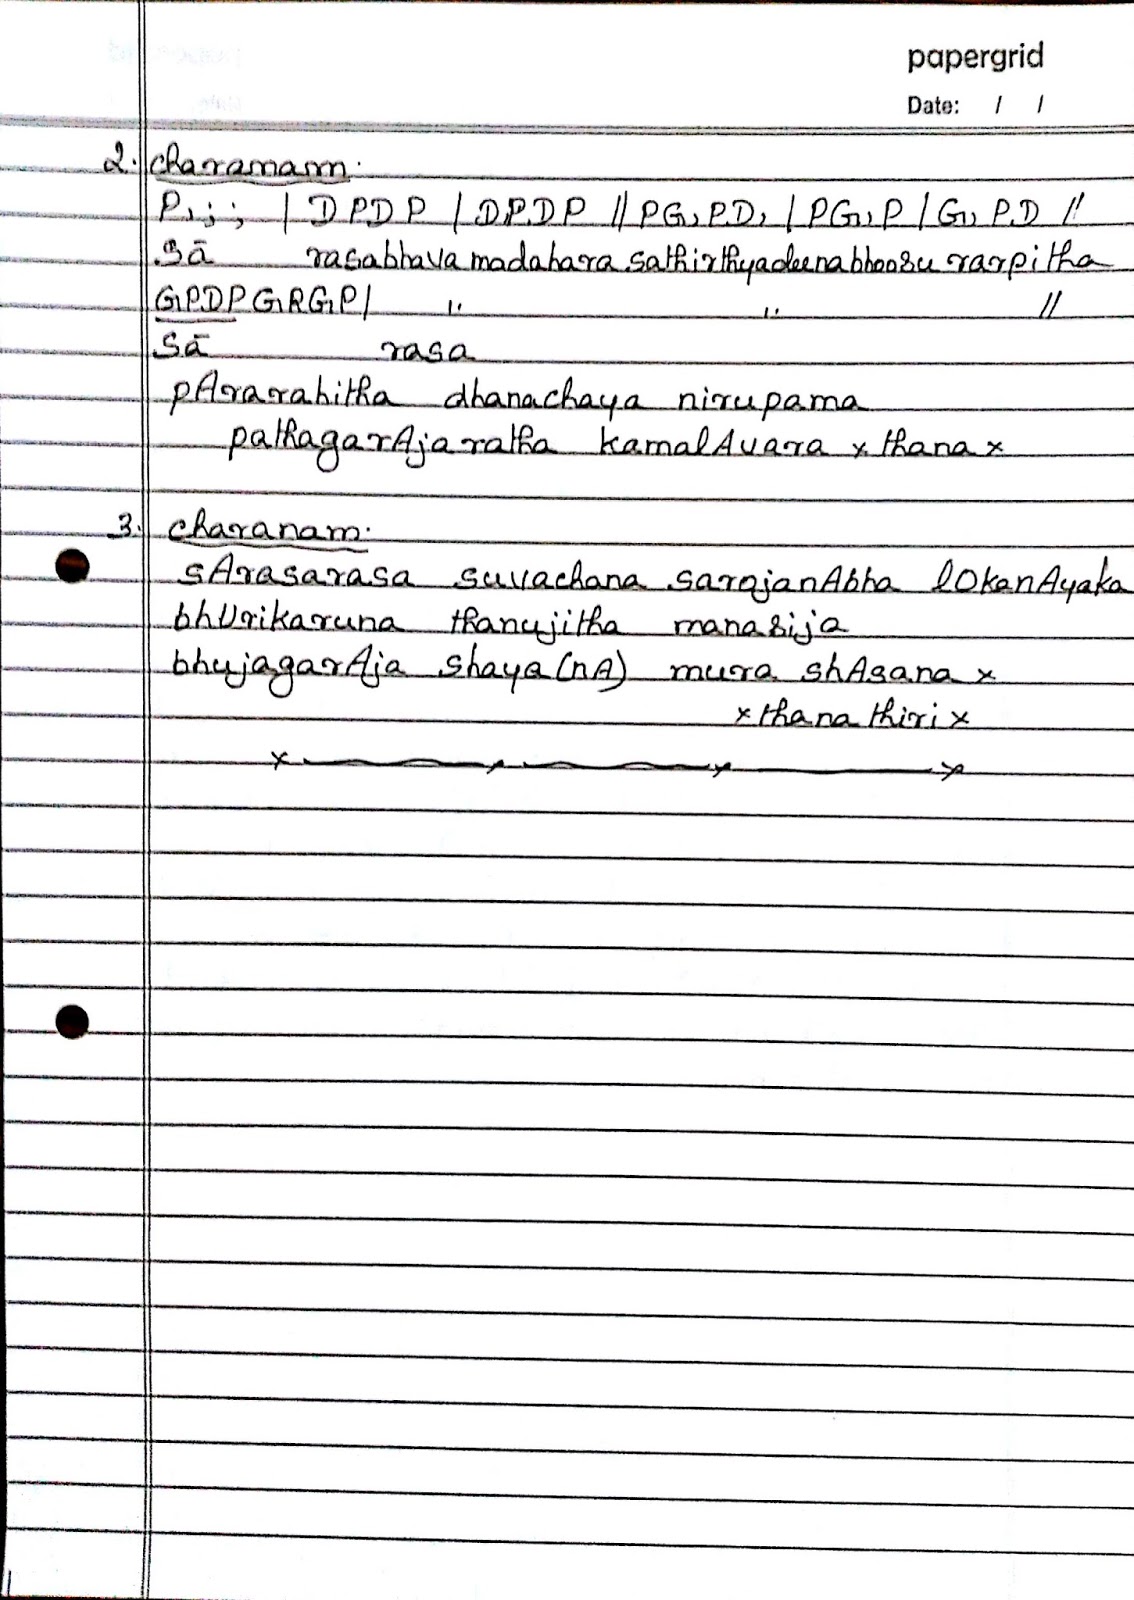 papergrid
Date: / /
2. Charanam:
P,; ; | D P D P | D P D P || PG, P D, | PG, P | G, P D ||
Sā rasabhava madahara sathirthyadeenabhoosu rarpitha
GPDP GRGP | " " ||
Sā rasa
pArarahitha dhanachaya nirupama
pathagarAjaratha kamalAvara x thana x
3. Charanam:
sArasarasa suvachana sarojanAbha lOkanAyaka
bhUrikaruna thanujitha manasija
bhujagarAja shaya(nA) mura shAsana x
x thana thiri x